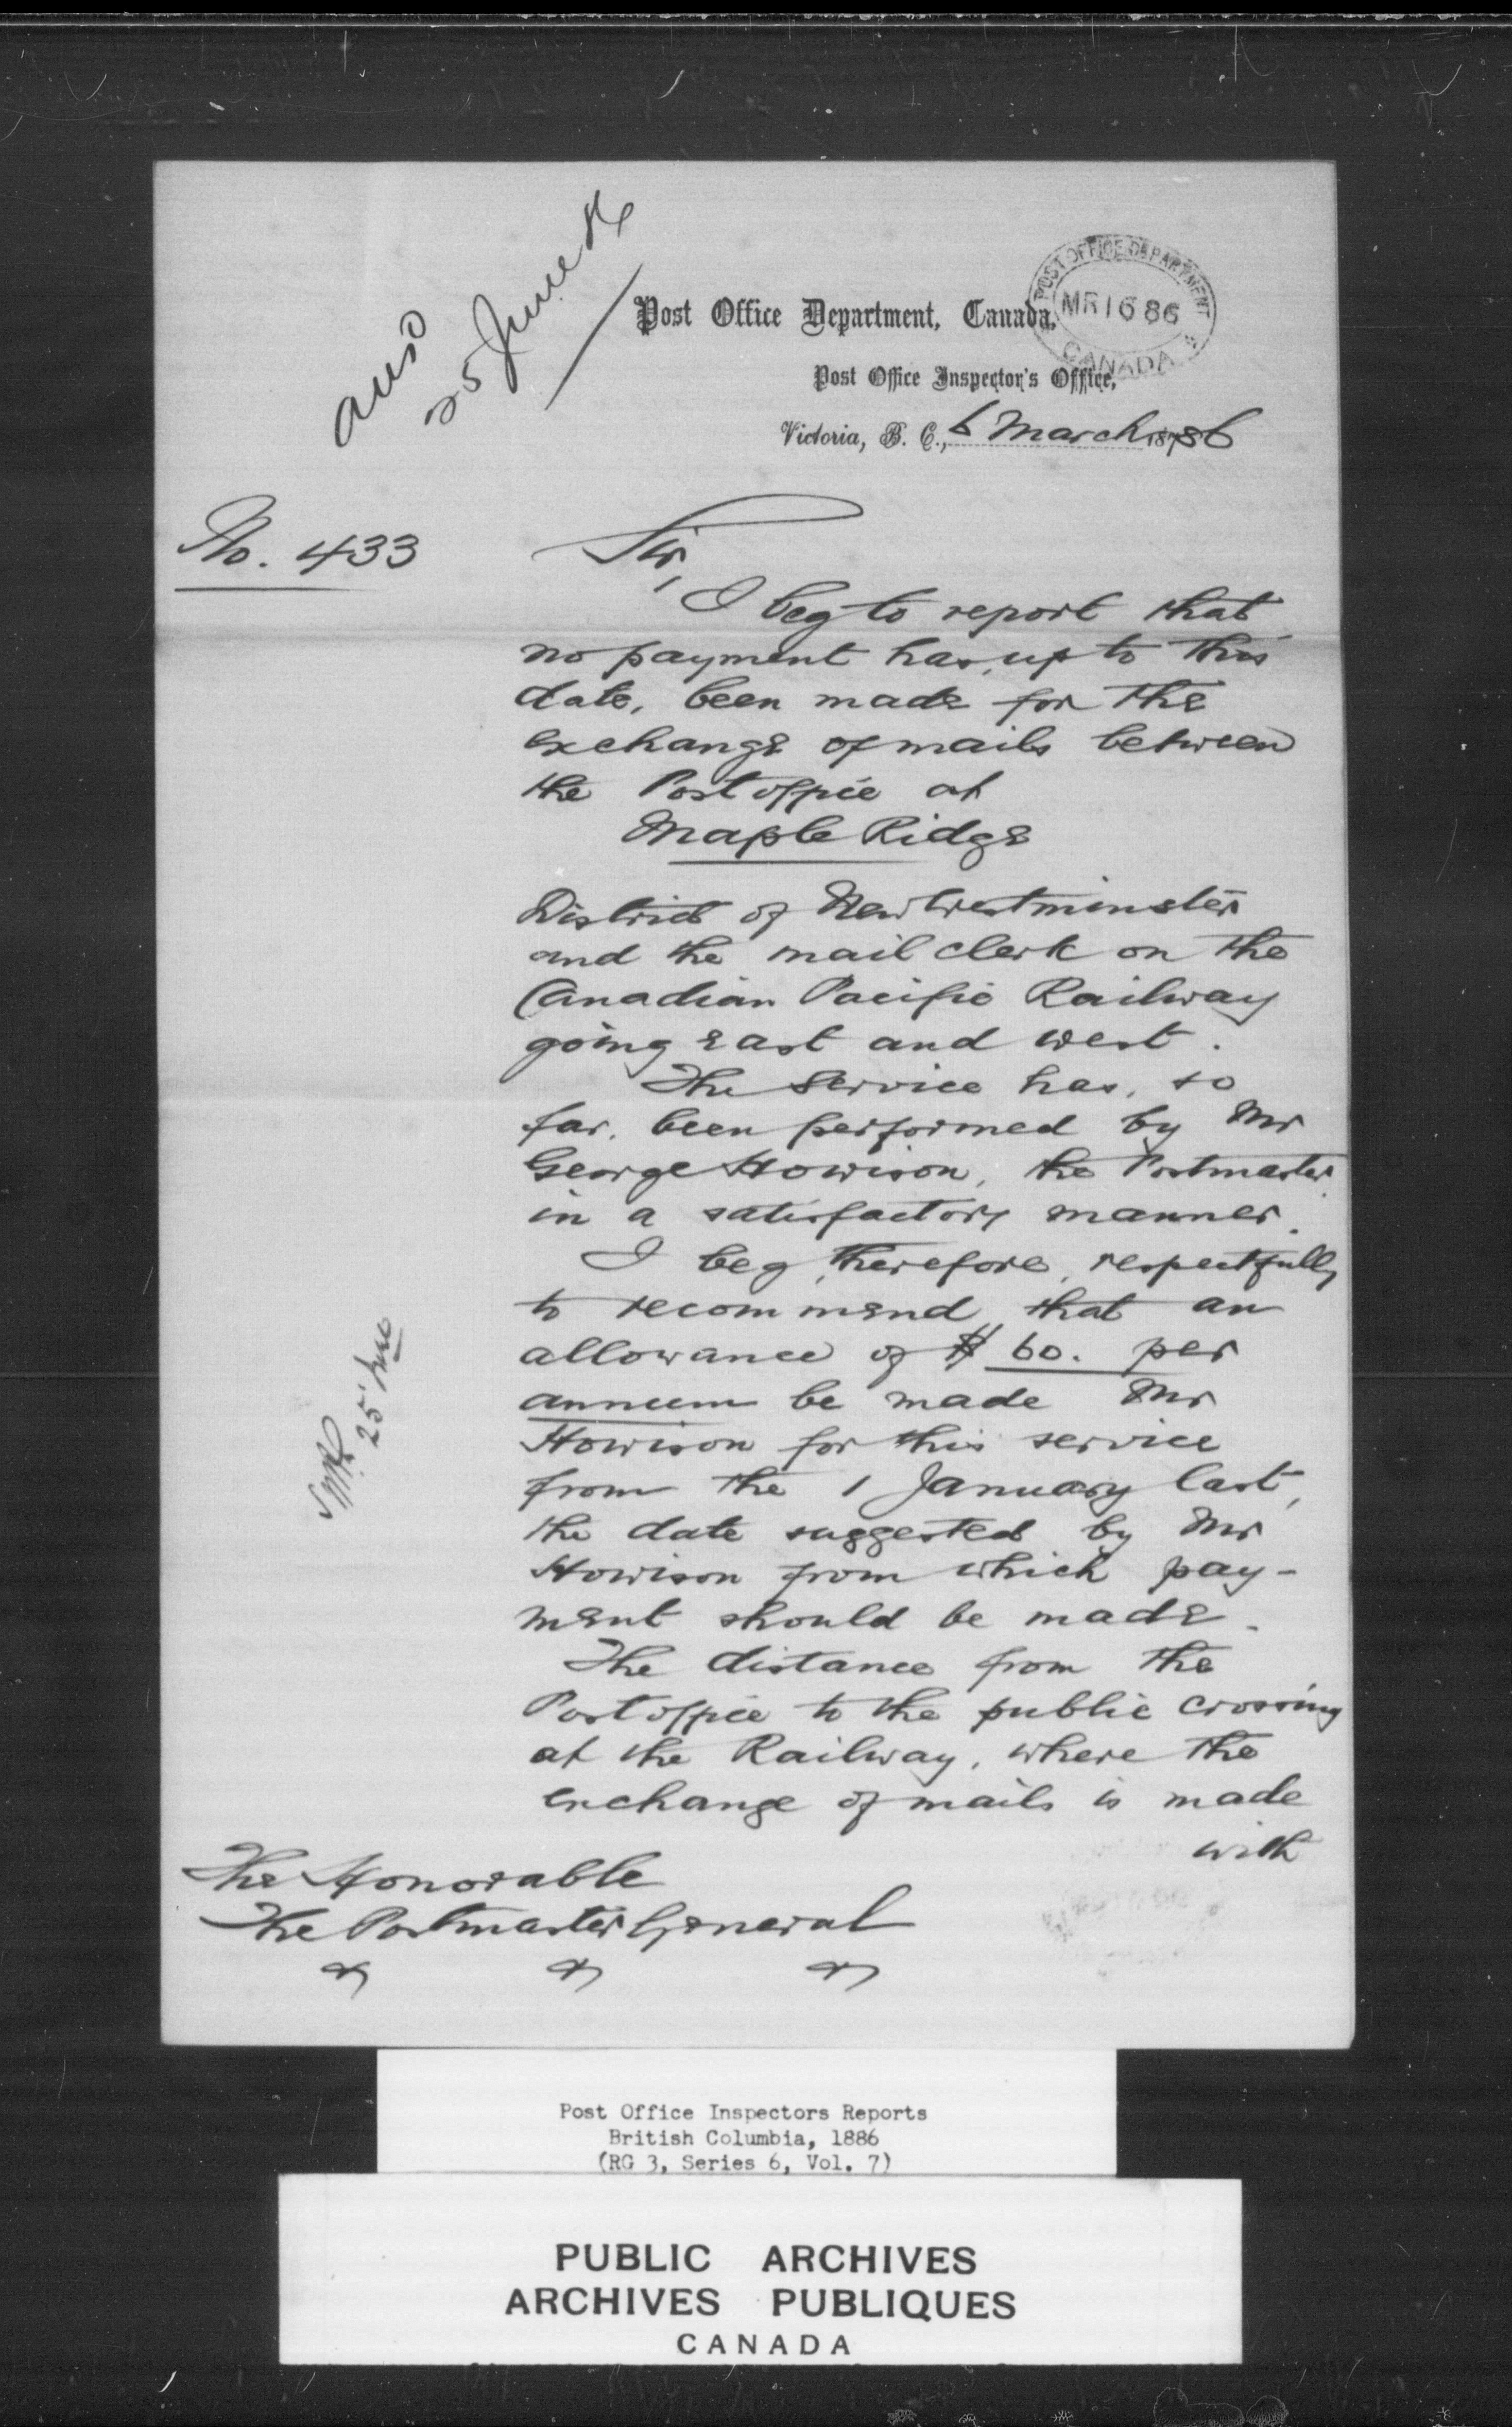 ansd
25 June 86
Post Office Department, Canada,
POST OFFICE DEPARTMENT
MR 16 86
CANADA
Post Office Inspector's Office,
Victoria, B. C., 6 March 1886
No. 433
Sir,
I beg to report that
no payment has, up to this
date, been made for the
exchange of mails between
the Post office at
Maple Ridge
District of New Westminster
and the mail clerk on the
Canadian Pacific Railway
going east and west.
The service has, so
far, been performed by Mr
George Howison, the Postmaster,
in a satisfactory manner.
I beg, therefore, respectfully
to recommend that an
allowance of $ 60. per
annum be made Mr
Howison for this service
from the 1 January last,
the date suggested by Mr
Howison from which pay-
ment should be made.
The distance from the
Post office to the public crossing
at the Railway, where the
exchange of mails is made
with
25 June
The Honorable
The Postmaster General
& & &
Post Office Inspectors Reports
British Columbia, 1886
(RG 3, Series 6, Vol. 7)
PUBLIC ARCHIVES
ARCHIVES PUBLIQUES
CANADA